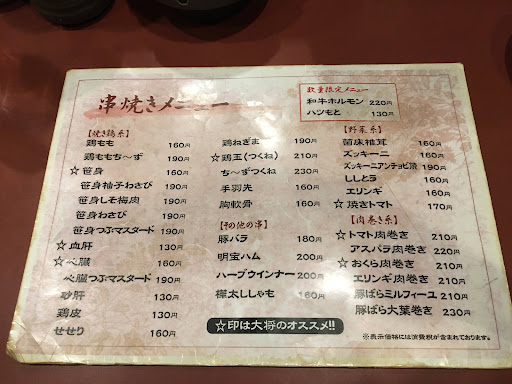 串焼きメニュー
数量限定メニュー
和牛ホルモン 220円
ハツもと 130円
【焼き鶏系】
鶏もも 160円
鶏ももち〜ず 190円
☆笹身 160円
笹身柚子わさび 190円
笹身しそ梅肉 190円
笹身わさび 190円
笹身つぶマスタード 190円
☆血肝 130円
☆心臓 160円
心臓つぶマスタード 190円
砂肝 130円
鶏皮 130円
せせり 160円
鶏ねぎま 190円
☆鶏玉(つくね) 210円
ち〜ずつくね 230円
手羽先 160円
胸軟骨 160円
【その他の串】
豚バラ 180円
明宝ハム 200円
ハーブウインナー 200円
樺太ししゃも 160円
☆印は大将のオススメ!!
【野菜系】
菌床椎茸 160円
ズッキーニ 160円
ズッキーニアンチョビ漬 190円
ししとう 160円
エリンギ 160円
☆焼きトマト 170円
【肉巻き系】
☆トマト肉巻き 210円
アスパラ肉巻き 230円
☆おくら肉巻き 210円
エリンギ肉巻き 210円
豚ばらミルフィーユ 210円
豚ばら大葉巻き 230円
※表示価格には消費税が含まれております。